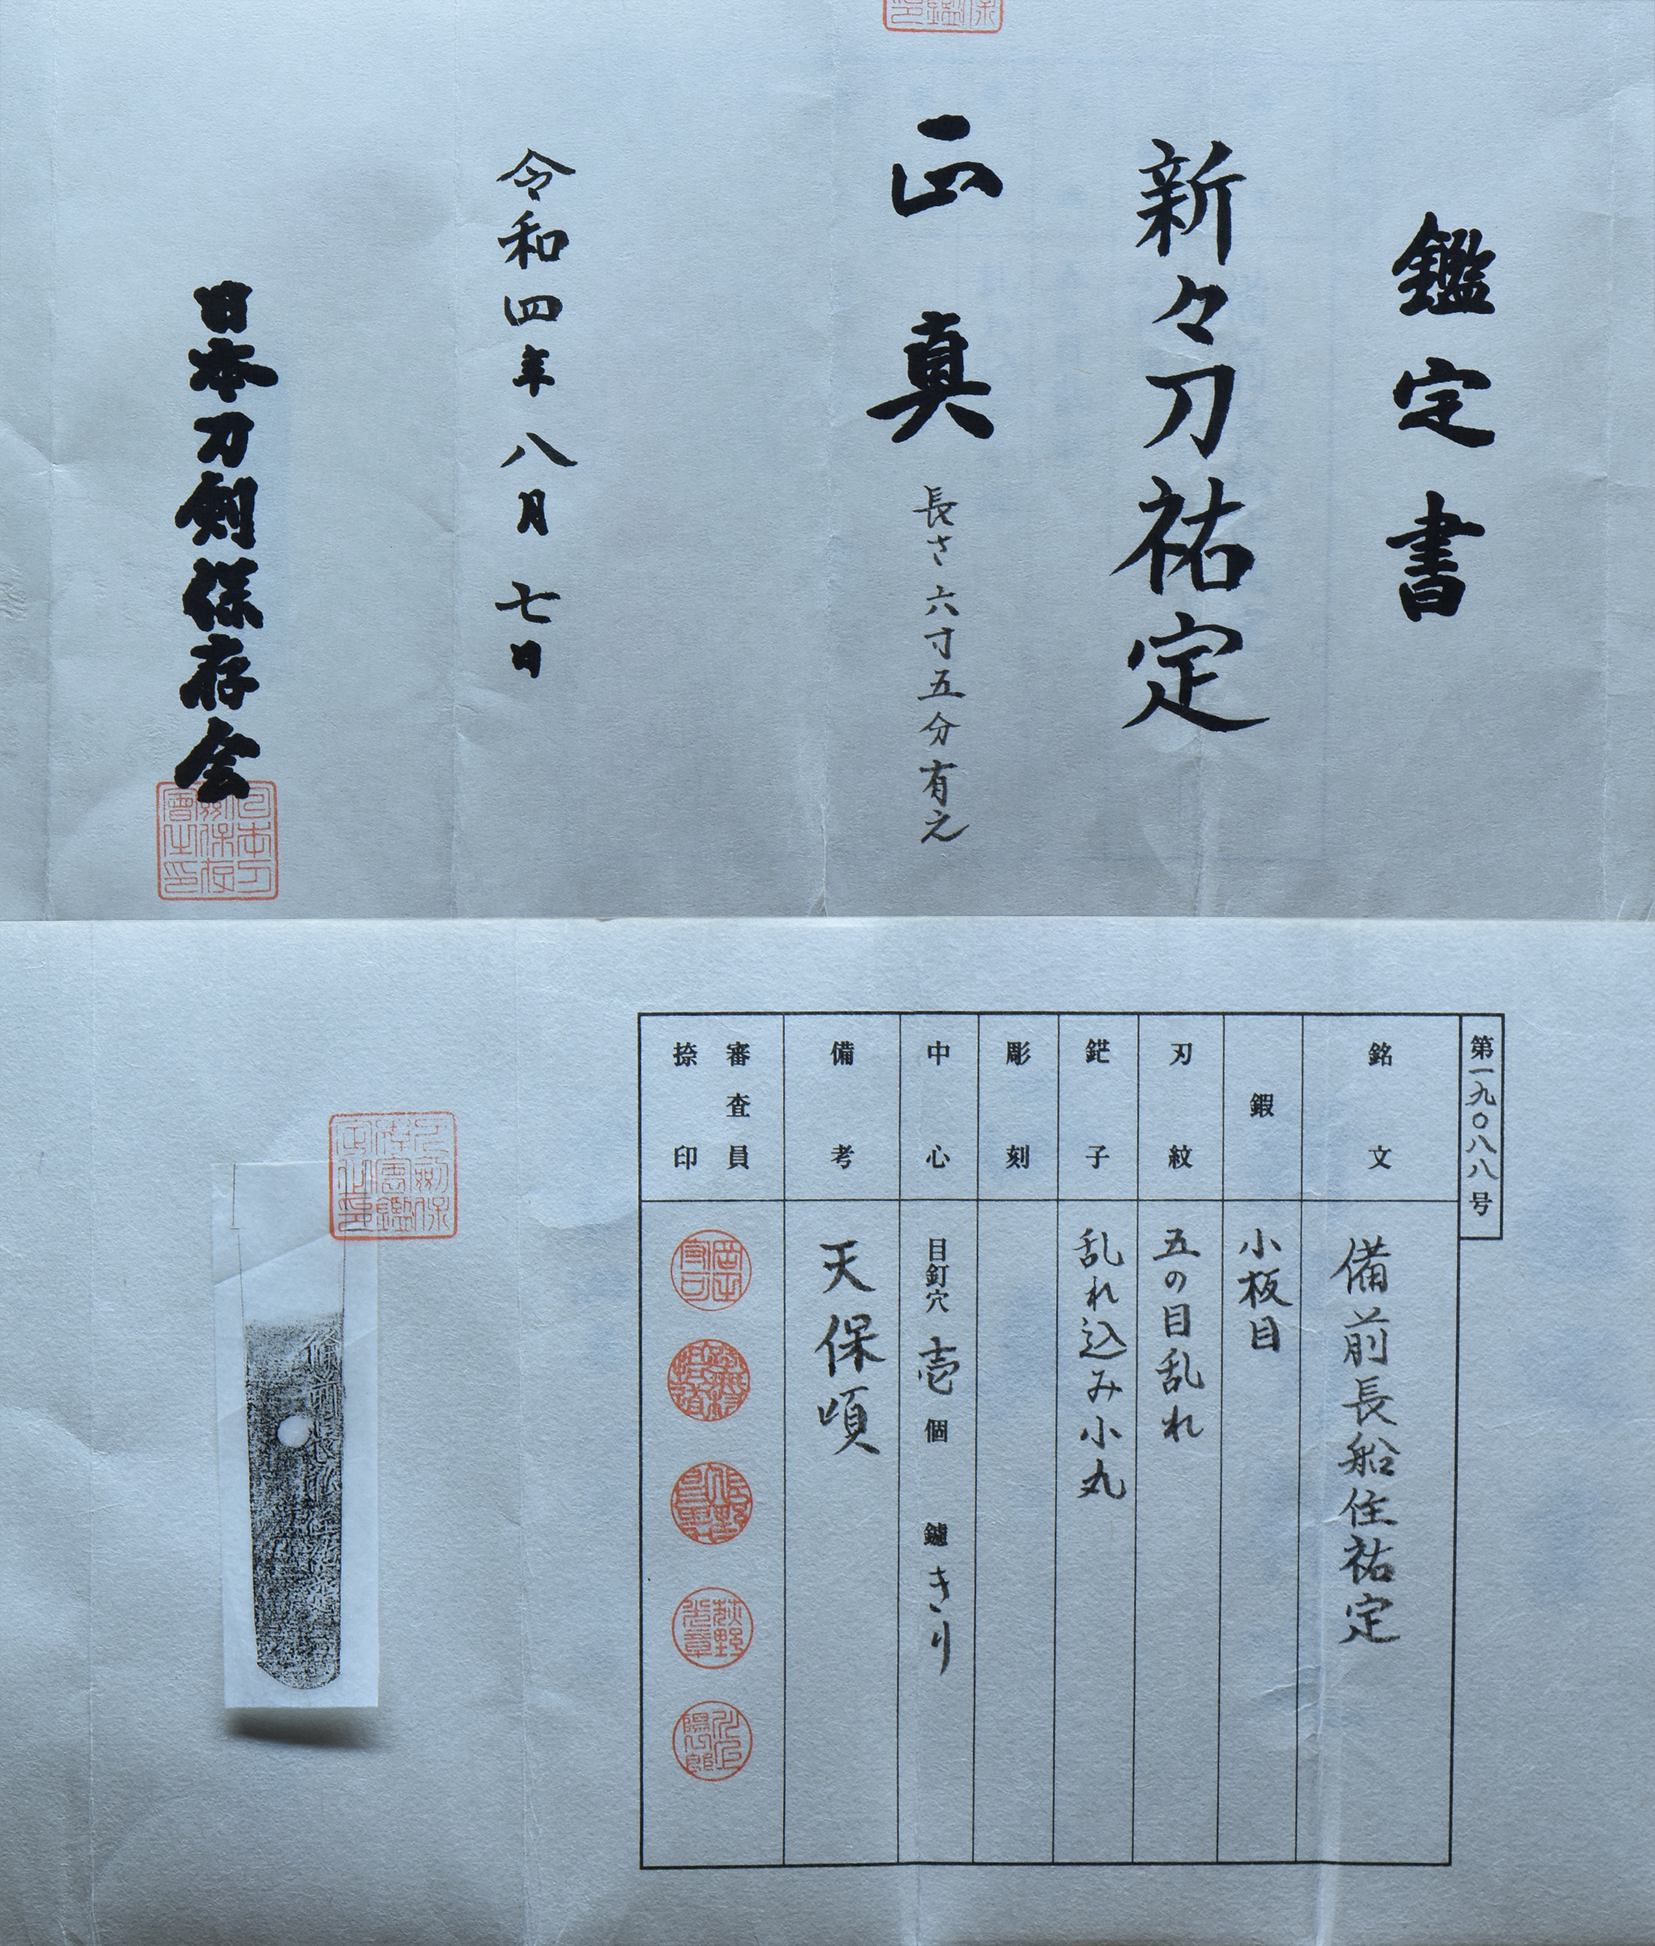 鑑定書
新々刀祐定
正真
長さ六寸五分有之
令和四年八月七日
日本刀剣保存会
第一九〇八八号
銘文
備前長船住祐定
鍜
小板目
刃紋
五の目乱れ
鋩子
乱れ込み小丸
彫刻
中心
目釘穴 壱 個 鑢 きり
備考
天保頃
審査員
捺印